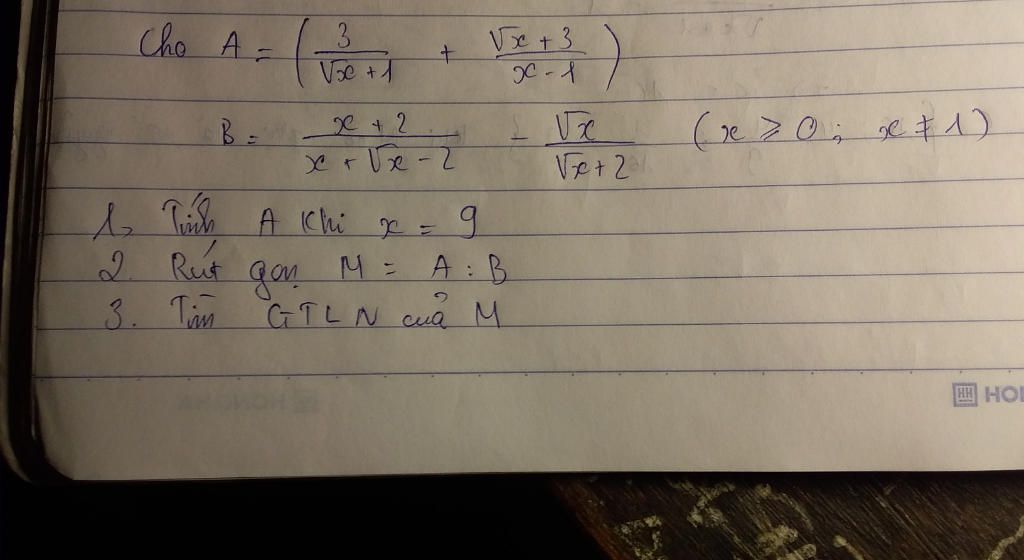 Cho A = ( 3/(√x + 1) + (√x + 3)/(x - 1) )
B = (x + 2)/(x + √x - 2) - √x/(√x + 2) (x ≥ 0; x ≠ 1)
1, Tính A khi x = 9
2. Rút gọn M = A : B
3. Tìm GTLN của M
HH HO